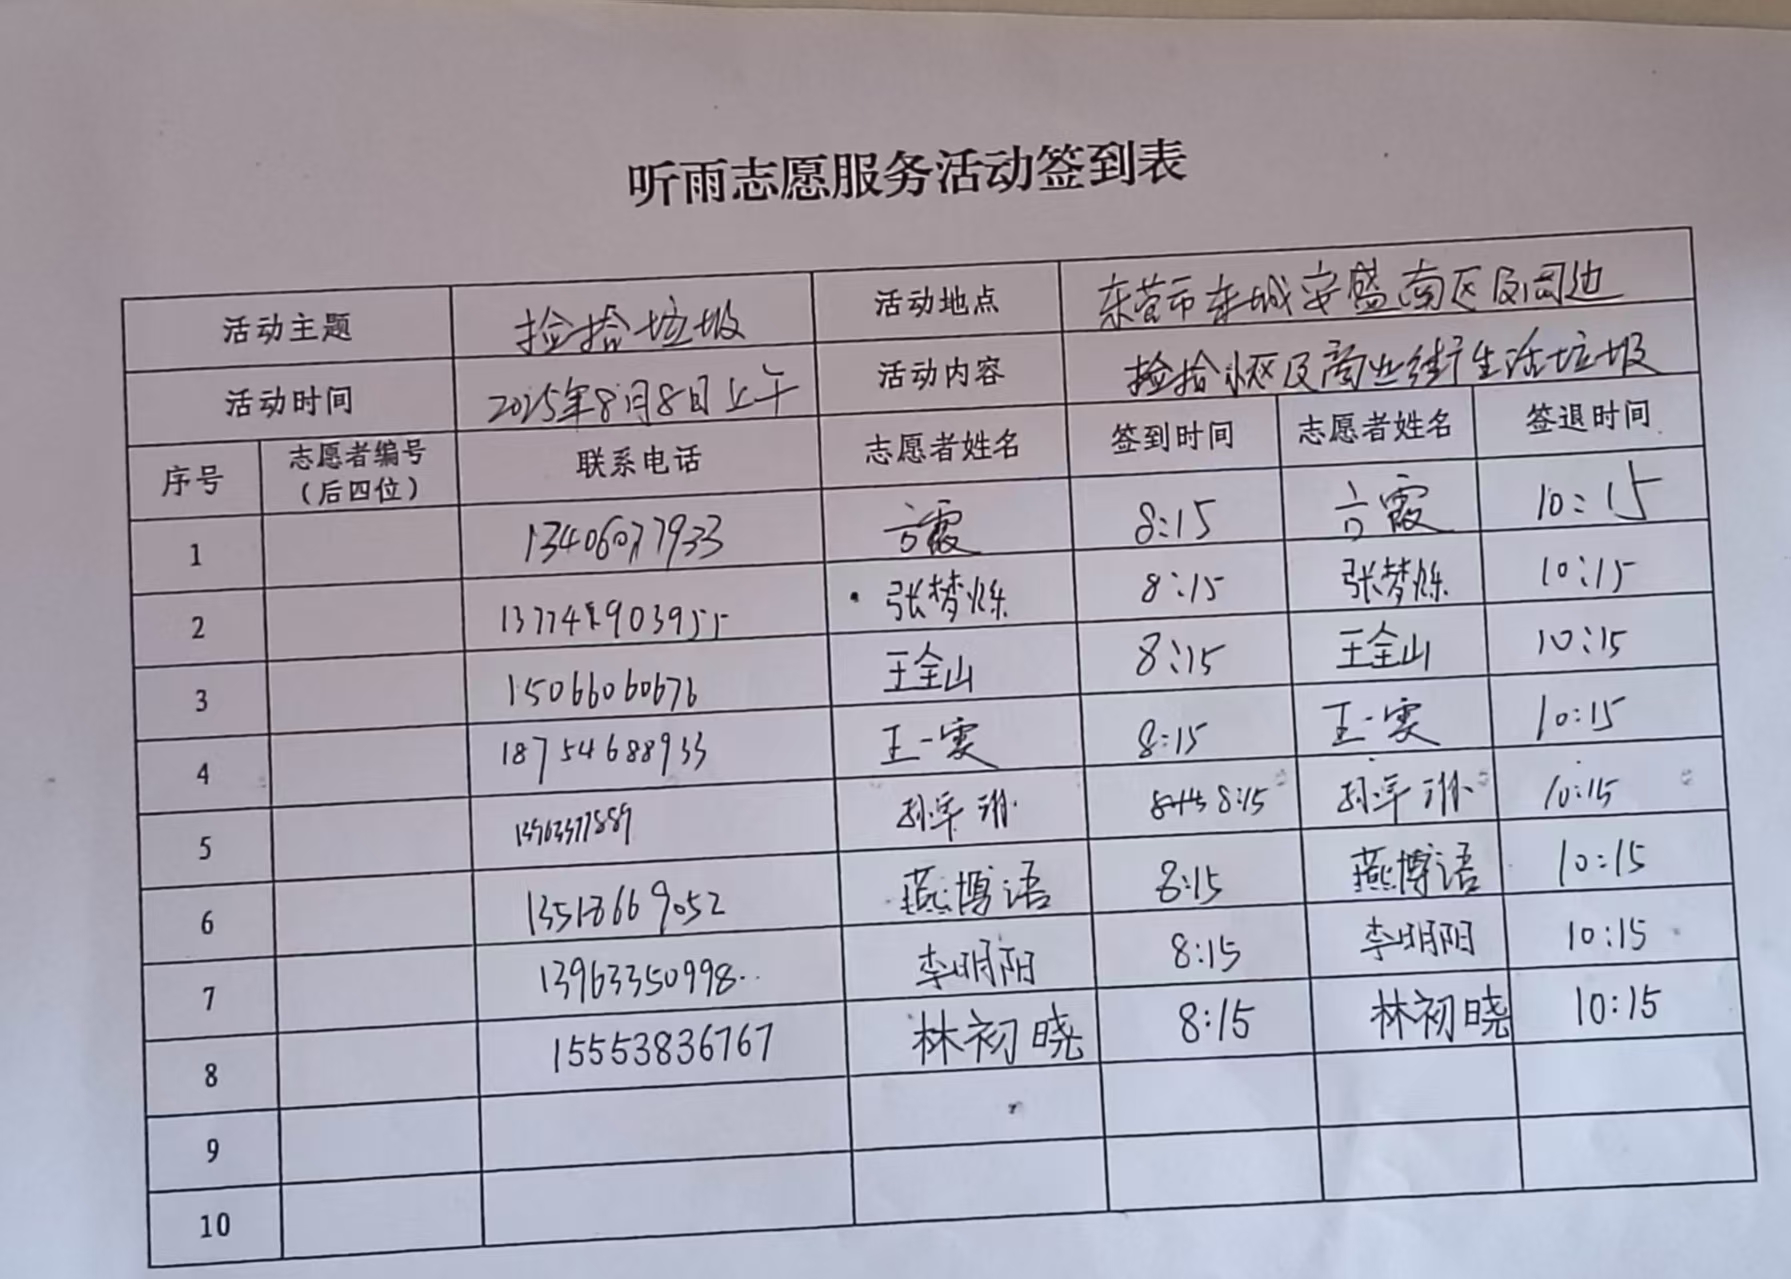 听雨志愿服务活动签到表
活动主题 捡拾垃圾 活动地点 东营市东城安盛南区及周边
活动时间 2025年8月8日上午 活动内容 捡拾小区及商业街生活垃圾
序号 志愿者编号（后四位） 联系电话 志愿者姓名 签到时间 志愿者姓名 签退时间
1 霞 8:15 霞 10:15
2 张梦烁 8:15 张梦烁 10:15
3 15066060676 王全山 8:15 王全山 10:15
4 18754688933 王一雯 8:15 王一雯 10:15
5 8:15 10:15
6 燕博语 8:15 燕博语 10:15
7 13963350998 李明阳 8:15 李明阳 10:15
8 15553836767 林初晓 8:15 林初晓 10:15
9
10